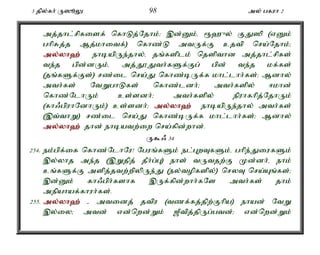 3 தில்கர் ருஸூலு 98 அல் பகரா 2
அத்தாட்சிகளைக் கொடுத்தோம்; இன்னும், ரூஹுல் குதுஸி (எனும்
பரிசுத்த ஆத்மாவைக்) கொண்டு அவருக்கு உதவி செய்தோம்;
அல்லாஹ் நாடியிருந்தால், தங்களிடம் தெளிவான அத்தாட்சிகள்
வந்த பின்னரும், அத்தூதுவர்களுக்குப் பின் வந்த மக்கள்
(தங்களுக்குள்) சண்டை செய்து கொண்டிருக்க மாட்டார்கள்; ஆனால்
அவர்கள் வேறுபாடுகள் கொண்டனர்; அவர்களில் ஈமான்
கொண்டோரும் உள்ளனர்; அவர்களில் நிராகரித்தோரும்
(காஃபிரானோரும்) உள்ளனர்; அல்லாஹ் நாடியிருந்தால் அவர்கள்
(இவ்வாறு) சண்டை செய்து கொண்டிருக்க மாட்டார்கள்; ஆனால்
அல்லாஹ் தான் நாடியவற்றை செய்கின்றான்.
ருகூஃ 34
254. நம்பிக்கை கொண்டோரே! பேரங்களும் நட்புறவுகளும், பரிந்துரைகளும்
இல்லாத அந்த (இறுதித் தீர்ப்பு) நாள் வருவதற்கு முன்னர், நாம்
உங்களுக்கு அளித்தவற்றிலிருந்து (நல்வழிகளில்) செலவு செய்யுங்கள்;
இன்னும் காஃபிர்களாக இருக்கின்றார்களே அவர்கள் தாம்
அநியாயக்காரர்கள்.
255. அல்லாஹ் - அவனைத் தவிர (வணக்கத்திற்குரிய) நாயன் வேறு
இல்லை. அவன் என்றென்றும் ஜீவித்திருப்பவன்; என்றென்றும்